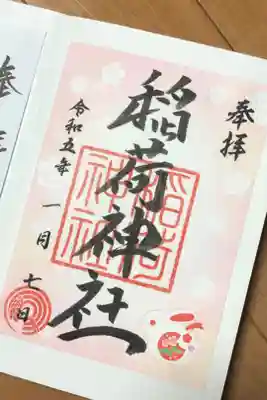 奉拝
稲荷神社
稲荷
神社
令和五年
一月
七日
奉拝